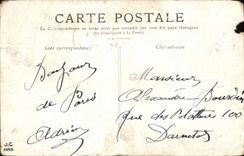 CARTE POSTALE
La Correspondance au recto n'est pas acceptée par tous les pays étrangers
(Se renseigner à la Poste)
Côté correspondance
Côté adresse
Bonjour
de Paris
Monsieur
Alexandre Bourdin
rue des 100
J.C
PARIS